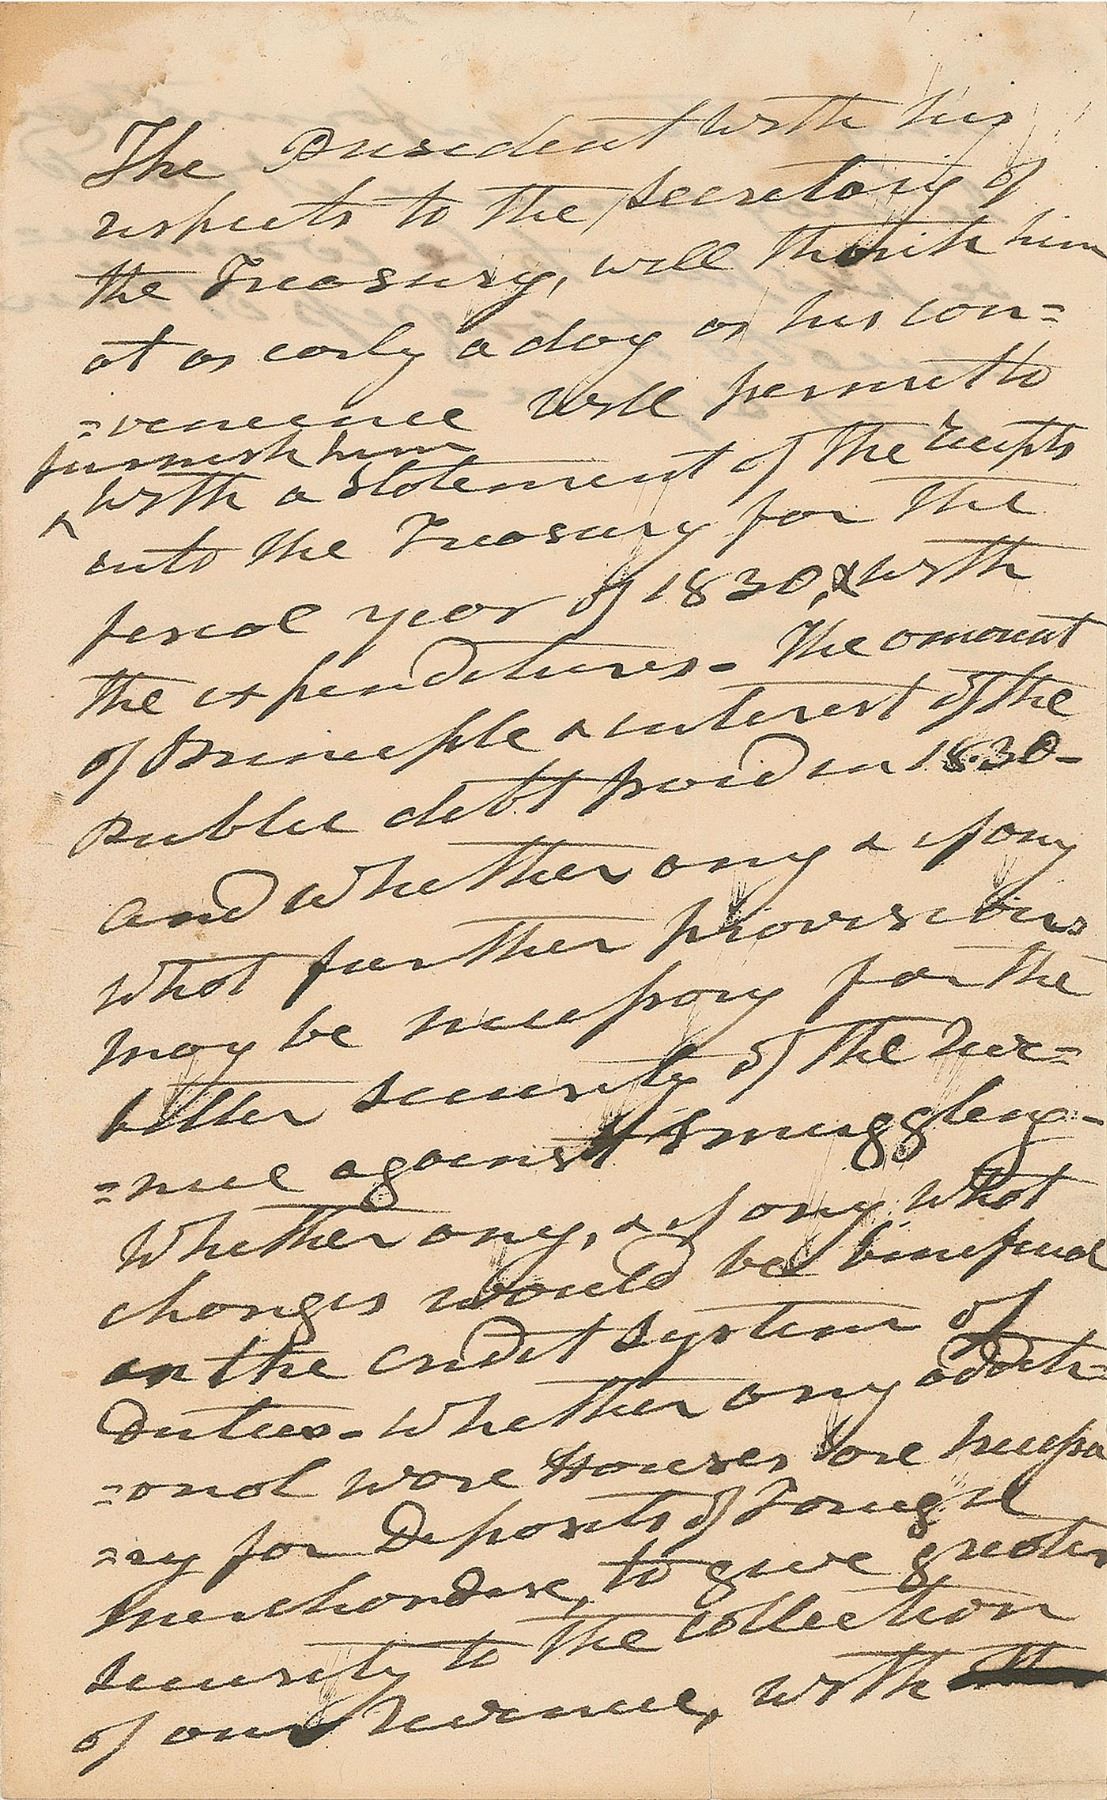 The President with his
respects to the secretary of
the Treasury, will thank him
at as early a day as his con=
=venience will permit to
furnish him
^ with a statement of the receipts
into the Treasury for the
fiscal year of 1830, & with
the expenditures - The amount
of Principle & interest of the
Public debt paid in 1830 -
and whether any & if any
what further provisions
may be necessary for the
better security of the reve=
=nue against smuggleng -
Whether any, & if any what
changes would be beneficial
on the credit system of
Duties - Whether any additi=
=onal ware Houses are necessa
=ry for Deposits of Foreign
merchandise, to give greater
security to the collection
of our Revenue, with